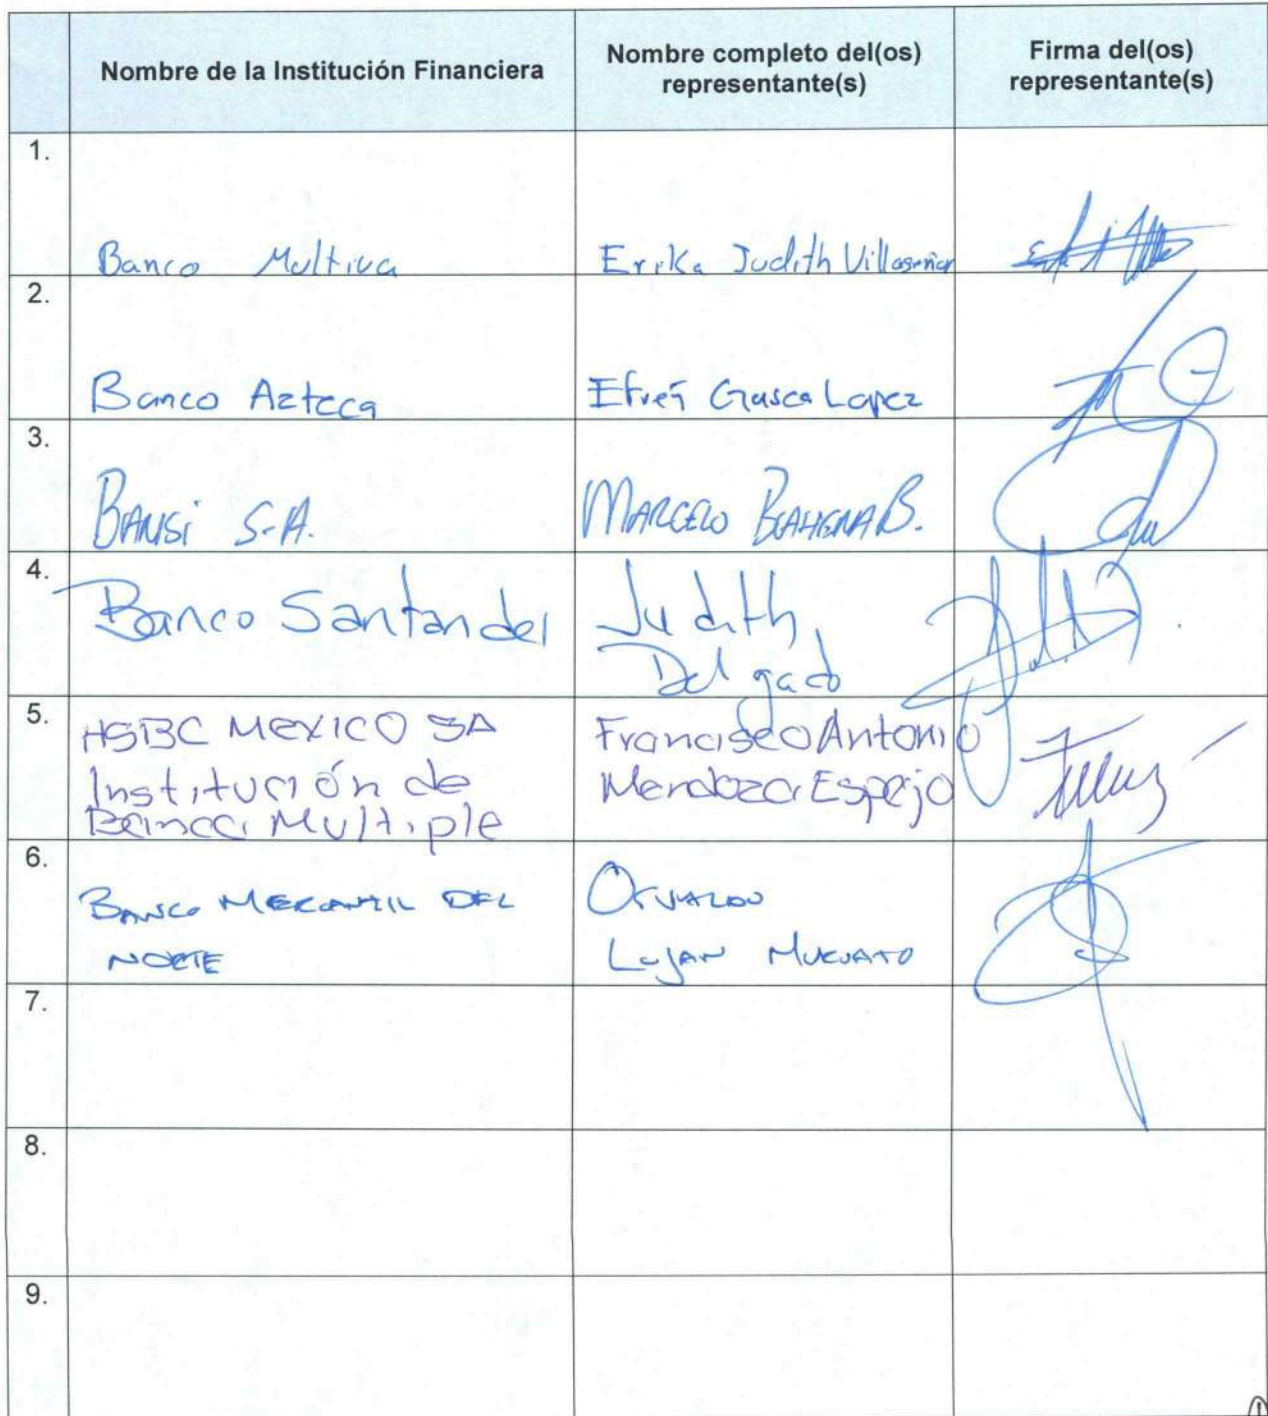 Nombre de la Institución Financiera
Nombre completo del(os)
representante(s)
Firma del(os)
representante(s)
1.
Banco Multiva
Erika Judith Villaseñor
2.
Banco Azteca
Efrén Gasca Lopez
3.
BANSi S.A.
MARCELO BAHENA B.
4.
Banco Santander
Judith
Delgado
5.
HSBC MEXICO SA
Institución de
Banca Multiple
Francisco Antonio
Mendoza Espejo
6.
BANCO MERCANTIL DEL
NORTE
OSVALDO
LUJAN
7.
8.
9.